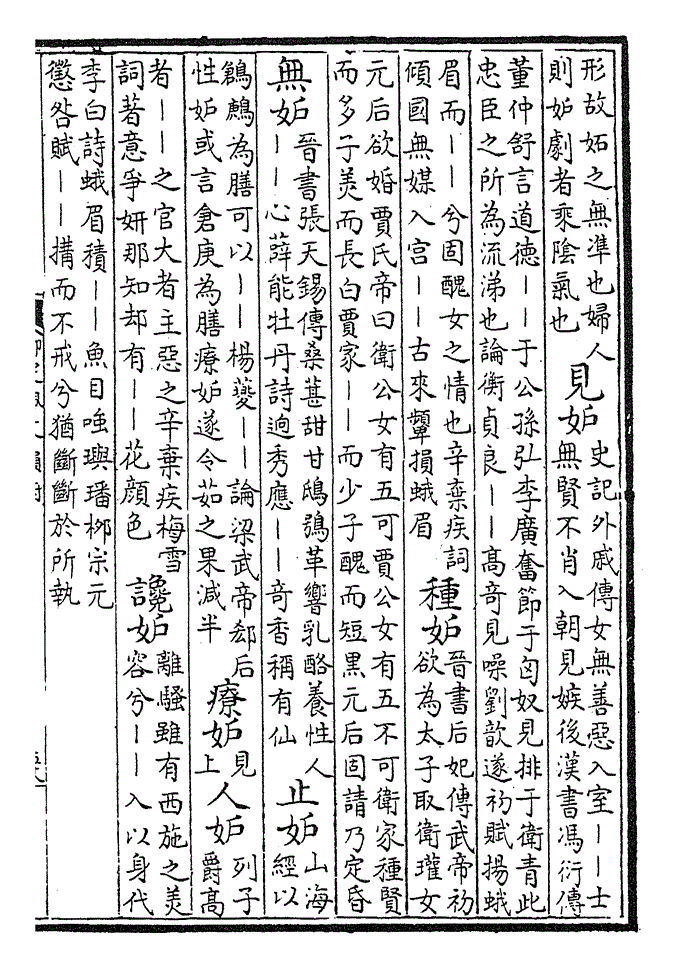 形故妬之無凖也婦人
則妬劇者乘隂氣也
見妬
史記外戚傳女無善惡入室丨丨士
無賢不肖入朝見嫉後漢書馮衍傳
董仲舒言道徳丨丨于公孫弘李廣奮節于匈奴見排于衛青此
忠臣之所為流涕也論衡貞良丨丨髙竒見噪劉歆遂初賦揚蛾
眉而丨丨兮固醜女之情也辛棄疾詞
傾國無媒入宫丨丨古來顰損蛾眉
種妬
晉書后妃傳武帝初
欲為太子取衛瓘女
元后欲婚賈氏帝曰衛公女有五可賈公女有五不可衛家種賢
而多子美而長白賈家丨丨而少子醜而短黒元后固請乃定昏
無妬
晉書張天錫傳桑葚甜甘鴟鴞革響乳酪養性人
丨丨心薛能牡丹詩逈秀應丨丨竒香稱有仙
止妬
山海
經以
鶬鶊為膳可以丨丨楊夔丨丨論梁武帝郄后
性妬或言倉庚為膳療妬遂令茹之果減半
療妬
見
上
人妬
列子
爵髙
者丨丨之官大者主惡之辛棄疾梅雪
詞著意爭妍那知却有丨丨花顔色
讒妬
離騷雖有西施之美
容兮丨丨入以身代
李白詩蛾眉積丨丨魚目嗤璵璠栁宗元
懲咎賦丨丨搆而不戒兮猶斷斷於所執